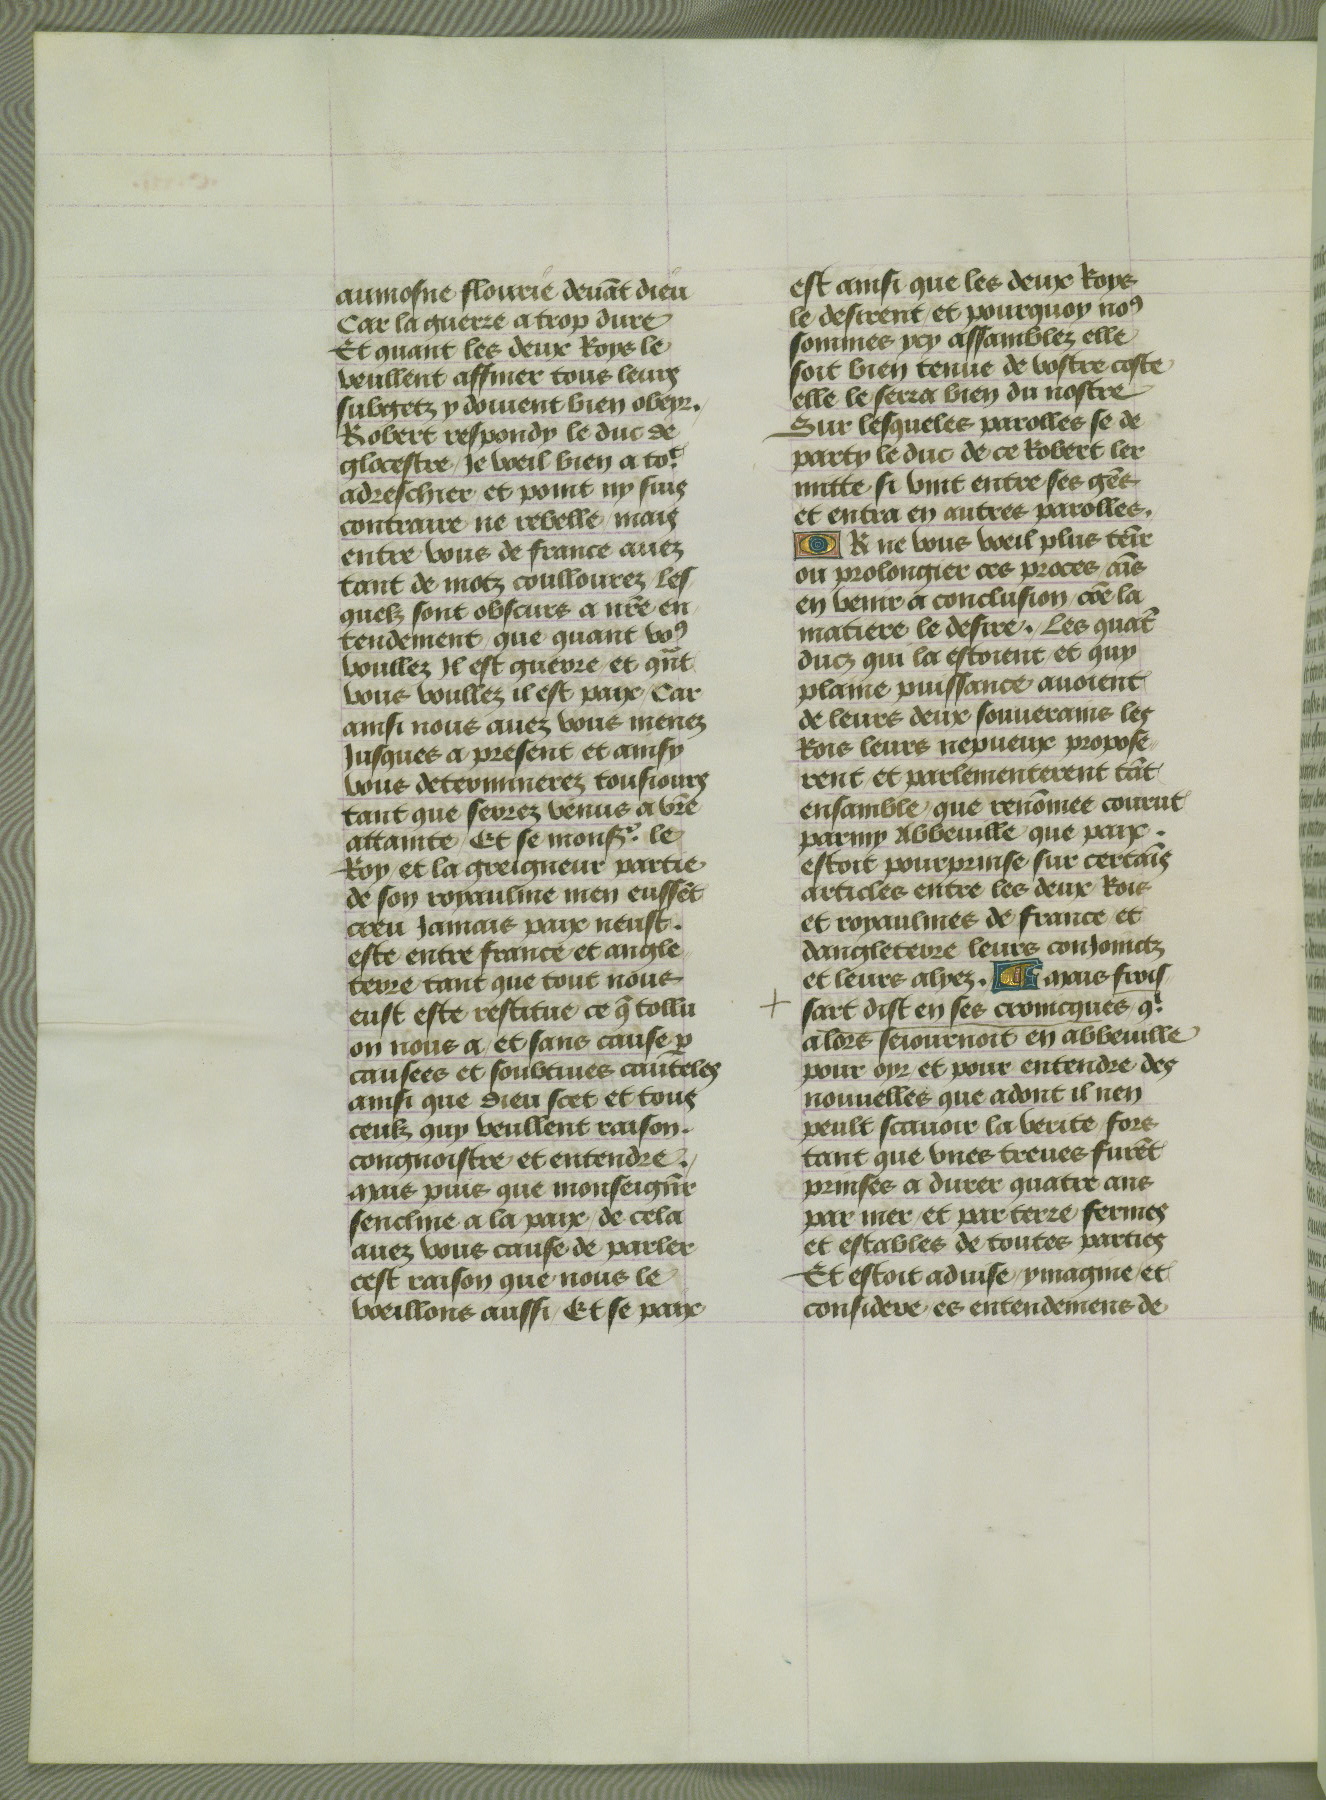 aumosne flourie deuãt dieu
Car la guerre a trop dure
Et quant les deux Roys le
veullent affiner tous leurs
subgetz y doiuent bien obeyr.
Robert respondy le duc de
glocestre / Je voeil bien a toꝰ
adreschier et point ny suis
contraire ne rebelle / mais
entre vous de france auez
tant de motz coullourez les
quelz sont obscurs a nr̃e en
tendement que quant voꝰ
voullez Jl est guerre et qñt
vous voullez il est paix / Car
ainsi nous auez vous menez
Jusques a present et ainsy
vous determinerez tousiours
tant que serrez venus a vr̃e
attainte / Et se monsr̃. le
Roy et la greigneur partie
de son royaulme men eussẽt
creu Jamais paix neust.
este entre france et angle
terre tant que tout nous
eust este restitue ce q̃ tollu
on nous a / et sans cause ꝑ
causees et soubtiues cautel̃es
ainsi que dieu scet et tous
ceulz quy veullent raison.
congnoistre et entendre.
Mais puis que monseignr̃
sencline a la paix / de cela
auez vous cause de parler
cest raison que nous le
voeillons aussi / Et se paix
est ainsi que les deux Roys
le desirent et pourquoy noꝰ
sommes ycy assamblez elle
soit bien tenue de vostre coste
elle le serra bien du nostre
Sur lesqueles parolles se de
party le duc de ce Robert ler
mitte si vint entre ses gẽs
et entra en autres parolles.
OR ne vous voeil plus teñir
ou prolongier ces proces aĩs
en venir a conclusion / cõe la
matiere le desire. Les quat̃
ducz qui la estoient et quy
plaine puissance auoient
de leurs deux souuerains les
Rois leurs nepueux propose-
rent et parlementerent tãt
ensamble que renõmee courut
parmy Abbeuille que paix.
estoit pourprinse sur certaĩs
articles entre les deux Rois
et royaulmes de france et
dangleterre leurs conJoinctz
et leurs alyez. Mais frois
+ sart dist en ses cronicques qⁱ
alors seiournoit en abbeuille
pour oyr et pour entendre des
nouuelles que adont il nen
peult scauoir la verite / fors
tant que vnes treues furẽt
prinses a durer quatre ans
par mer et par terre fermes
et estables de toutes parties
Et estoit aduise / ymagine et
considere es entendemens de